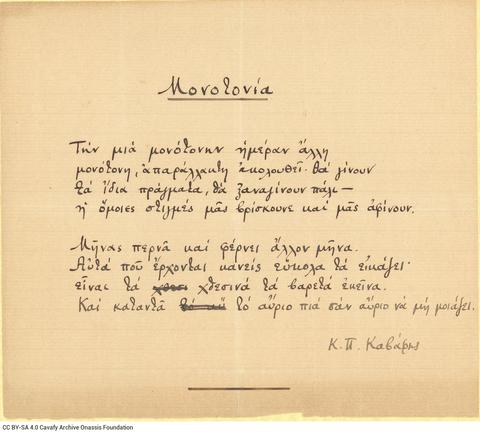 Μονοτονία
Τὴν μιὰ μονότονην ἡμέραν ἄλλη
μονότονη, ἀπαράλλακτη ἀκολουθεῖ· θὰ γίνουν
τὰ ἴδια πράγματα, θὰ ξαναγίνουν πάλι —
ἡ ὅμοιες στιγμὲς μᾶς βρίσκουνε καὶ μᾶς ἀφίνουν.
Μῆνας περνᾶ καὶ φέρνει ἄλλον μῆνα.
Αὐτὰ ποὺ ἔρχονται κανεὶς εὔκολα τὰ εἰκάζει·
εἶναι τὰ χθεσινὰ τὰ βαρετὰ ἐκεῖνα.
Καὶ καταντᾶ τὸ αὔριο πιὰ σὰν αὔριο νὰ μὴ μοιάζει.
Κ. Π. Καβάφης
CC BY-SA 4.0 Cavafy Archive Onassis Foundation